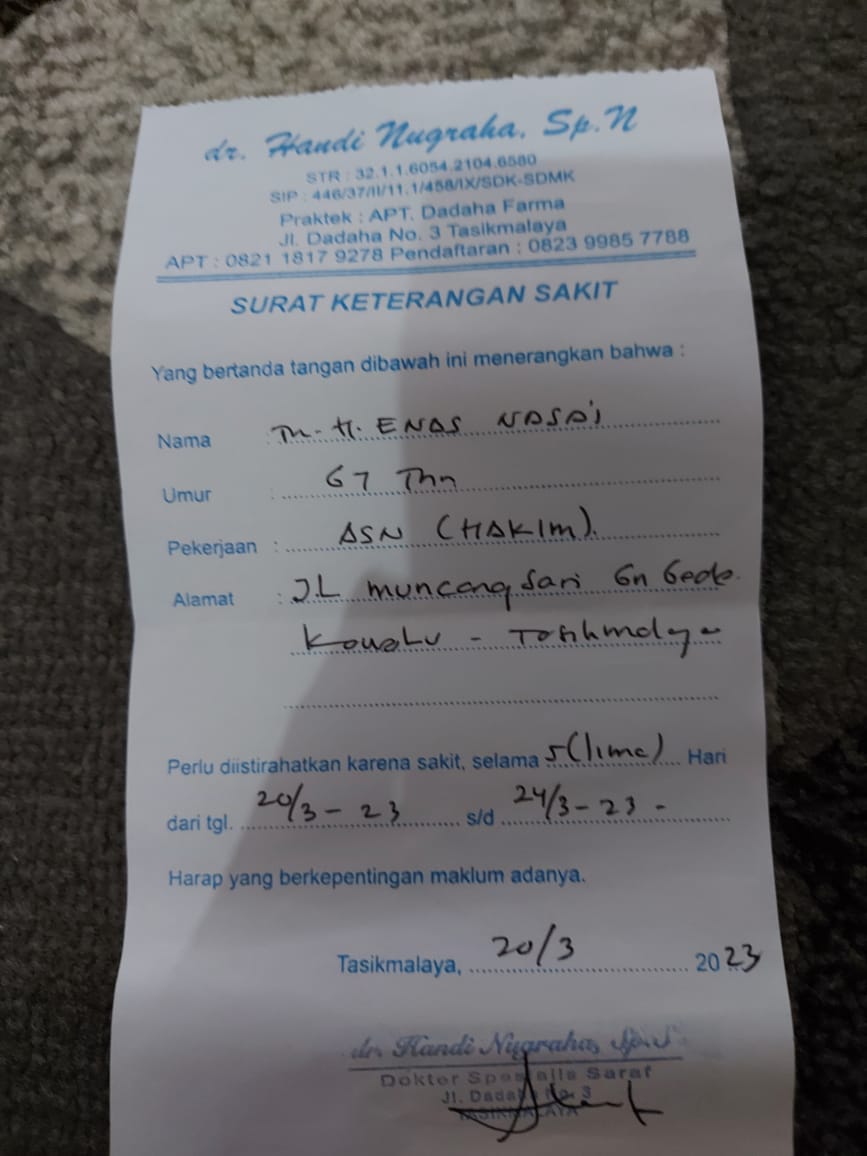 dr. Handi Nugraha, Sp.N
STR : 32.1.1.6054.2104.6580
SIP : 446/37/II/11.1/458/IX/SDK-SDMK
Praktek : APT. Dadaha Farma
Jl. Dadaha No. 3 Tasikmalaya
APT : 0821 1817 9278 Pendaftaran : 0823 9985 7788
SURAT KETERANGAN SAKIT
Yang bertanda tangan dibawah ini menerangkan bahwa :
Nama : Tn. H. ENAS NASA'i
Umur : 67 Thn
Pekerjaan : ASN (HAKIM).
Alamat : JL muncangsari Gn Gede
Kawalu - Tasikmalaya
Perlu diistirahatkan karena sakit, selama 5 (lima) Hari
dari tgl. 20/3 - 23 s/d 24/3 - 23 -
Harap yang berkepentingan maklum adanya.
Tasikmalaya, 20/3 2023
dr. Handi Nugraha, Sp.S
Dokter Spesialis Saraf
Jl. Dadaha No. 3
TASIKMALAYA